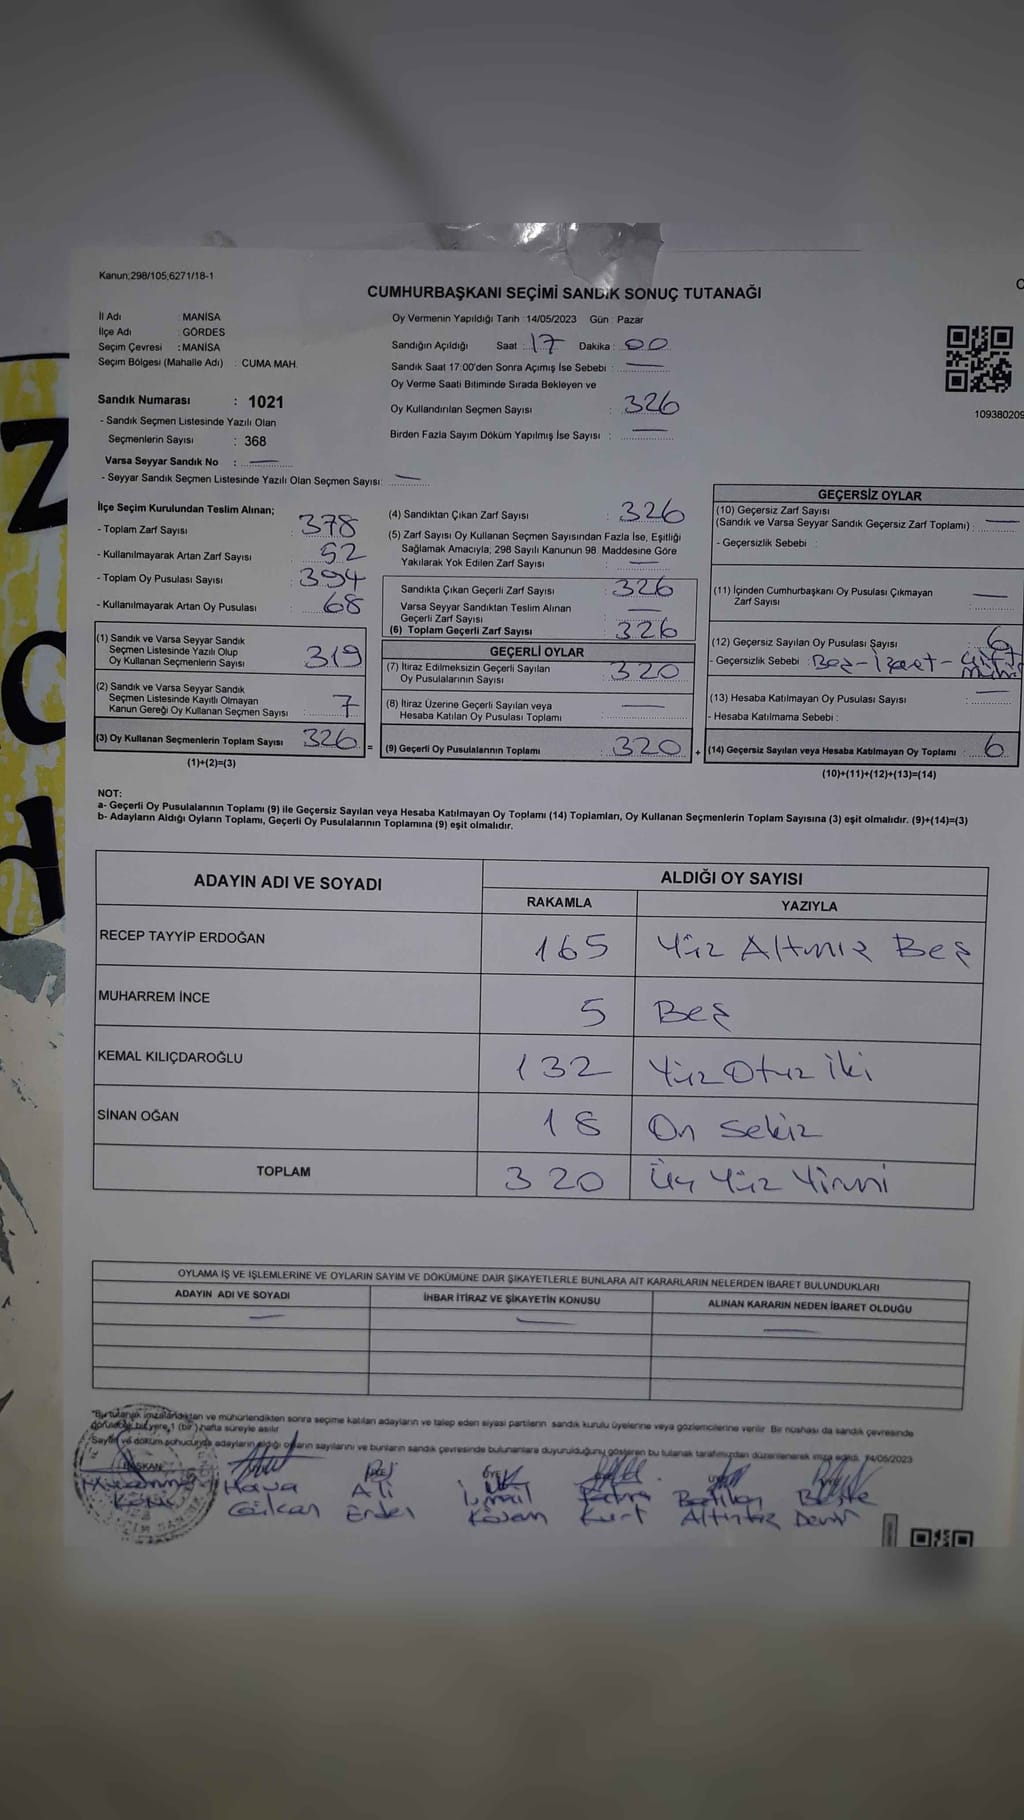 Kanun;298/105;6271/18-1
CUMHURBAŞKANI SEÇİMİ SANDIK SONUÇ TUTANAĞI
İl Adı : MANİSA
İlçe Adı : GÖRDES
Seçim Çevresi : MANİSA
Seçim Bölgesi (Mahalle Adı) : CUMA MAH.
Sandık Numarası : 1021
- Sandık Seçmen Listesinde Yazılı Olan
Seçmenlerin Sayısı : 368
Varsa Seyyar Sandık No : —
- Seyyar Sandık Seçmen Listesinde Yazılı Olan Seçmen Sayısı: —
Oy Vermenin Yapıldığı Tarih : 14/05/2023 Gün : Pazar
Sandığın Açıldığı Saat : 17 Dakika : 00
Sandık Saat 17:00'den Sonra Açımış İse Sebebi : —
Oy Verme Saati Bitiminde Sırada Bekleyen ve
Oy Kullandırılan Seçmen Sayısı : 326
Birden Fazla Sayım Döküm Yapılmış İse Sayısı : —
109380209
İlçe Seçim Kurulundan Teslim Alınan;
- Toplam Zarf Sayısı : 378
- Kullanılmayarak Artan Zarf Sayısı : 52
- Toplam Oy Pusulası Sayısı : 394
- Kullanılmayarak Artan Oy Pusulası : 68
(1) Sandık ve Varsa Seyyar Sandık
Seçmen Listesinde Yazılı Olup
Oy Kullanan Seçmenlerin Sayısı : 319
(2) Sandık ve Varsa Seyyar Sandık
Seçmen Listesinde Kayıtlı Olmayan
Kanun Gereği Oy Kullanan Seçmen Sayısı : 7
(3) Oy Kullanan Seçmenlerin Toplam Sayısı 326 =
(1)+(2)=(3)
(4) Sandıktan Çıkan Zarf Sayısı : 326
(5) Zarf Sayısı Oy Kullanan Seçmen Sayısından Fazla İse, Eşitliği
Sağlamak Amacıyla; 298 Sayılı Kanunun 98. Maddesine Göre
Yakılarak Yok Edilen Zarf Sayısı : —
Sandıkta Çıkan Geçerli Zarf Sayısı : 326
Varsa Seyyar Sandıktan Teslim Alınan
Geçerli Zarf Sayısı : —
(6) Toplam Geçerli Zarf Sayısı : 326
GEÇERLİ OYLAR
(7) İtiraz Edilmeksizin Geçerli Sayılan
Oy Pusulalarının Sayısı : 320
(8) İtiraz Üzerine Geçerli Sayılan veya
Hesaba Katılan Oy Pusulası Toplamı : —
(9) Geçerli Oy Pusulalarının Toplamı : 320 +
GEÇERSİZ OYLAR
(10) Geçersiz Zarf Sayısı
(Sandık ve Varsa Seyyar Sandık Geçersiz Zarf Toplamı) : —
- Geçersizlik Sebebi :
(11) İçinden Cumhurbaşkanı Oy Pusulası Çıkmayan
Zarf Sayısı : —
(12) Geçersiz Sayılan Oy Pusulası Sayısı : 6
- Geçersizlik Sebebi :
(13) Hesaba Katılmayan Oy Pusulası Sayısı : —
- Hesaba Katılmama Sebebi :
(14) Geçersiz Sayılan veya Hesaba Katılmayan Oy Toplamı : 6
(10)+(11)+(12)+(13)=(14)
NOT:
a- Geçerli Oy Pusulalarının Toplamı (9) ile Geçersiz Sayılan veya Hesaba Katılmayan Oy Toplamı (14) Toplamları, Oy Kullanan Seçmenlerin Toplam Sayısına (3) eşit olmalıdır. (9)+(14)=(3)
b- Adayların Aldığı Oyların Toplamı, Geçerli Oy Pusulalarının Toplamına (9) eşit olmalıdır.
ADAYIN ADI VE SOYADI ALDIĞI OY SAYISI
RAKAMLA YAZIYLA
RECEP TAYYİP ERDOĞAN 165 Yüz Altmış Beş
MUHARREM İNCE 5 Beş
KEMAL KILIÇDAROĞLU 132 Yüz Otuz İki
SİNAN OĞAN 18 On Sekiz
TOPLAM 320 Üç Yüz Yirmi
OYLAMA İŞ VE İŞLEMLERİNE VE OYLARIN SAYIM VE DÖKÜMÜNE DAİR ŞİKAYETLERLE BUNLARA AİT KARARLARIN NELERDEN İBARET BULUNDUKLARI
ADAYIN ADI VE SOYADI İHBAR İTİRAZ VE ŞİKAYETİN KONUSU ALINAN KARARIN NEDEN İBARET OLDUĞU
— — —
"Bu tutanak imzalandıktan ve mühürlendikten sonra seçime katılan adayların ve talep eden siyasi partilerin sandık kurulu üyelerine veya gözlemcilerine verilir. Bir nüshası da sandık çevresinde
görülebilir bir yere 1 (bir) hafta süreyle asılır
Sayım ve döküm sonucunda adayların aldığı oyların sayılarını ve bunların sandık çevresinde bulunanlara duyurulduğunu gösteren bu tutanak tarafımızdan düzenlenerek imza edildi. 14/05/2023
BAŞKAN ÜYE
Hava Ali İsmail Fatma
Gülcan Kurt Demir